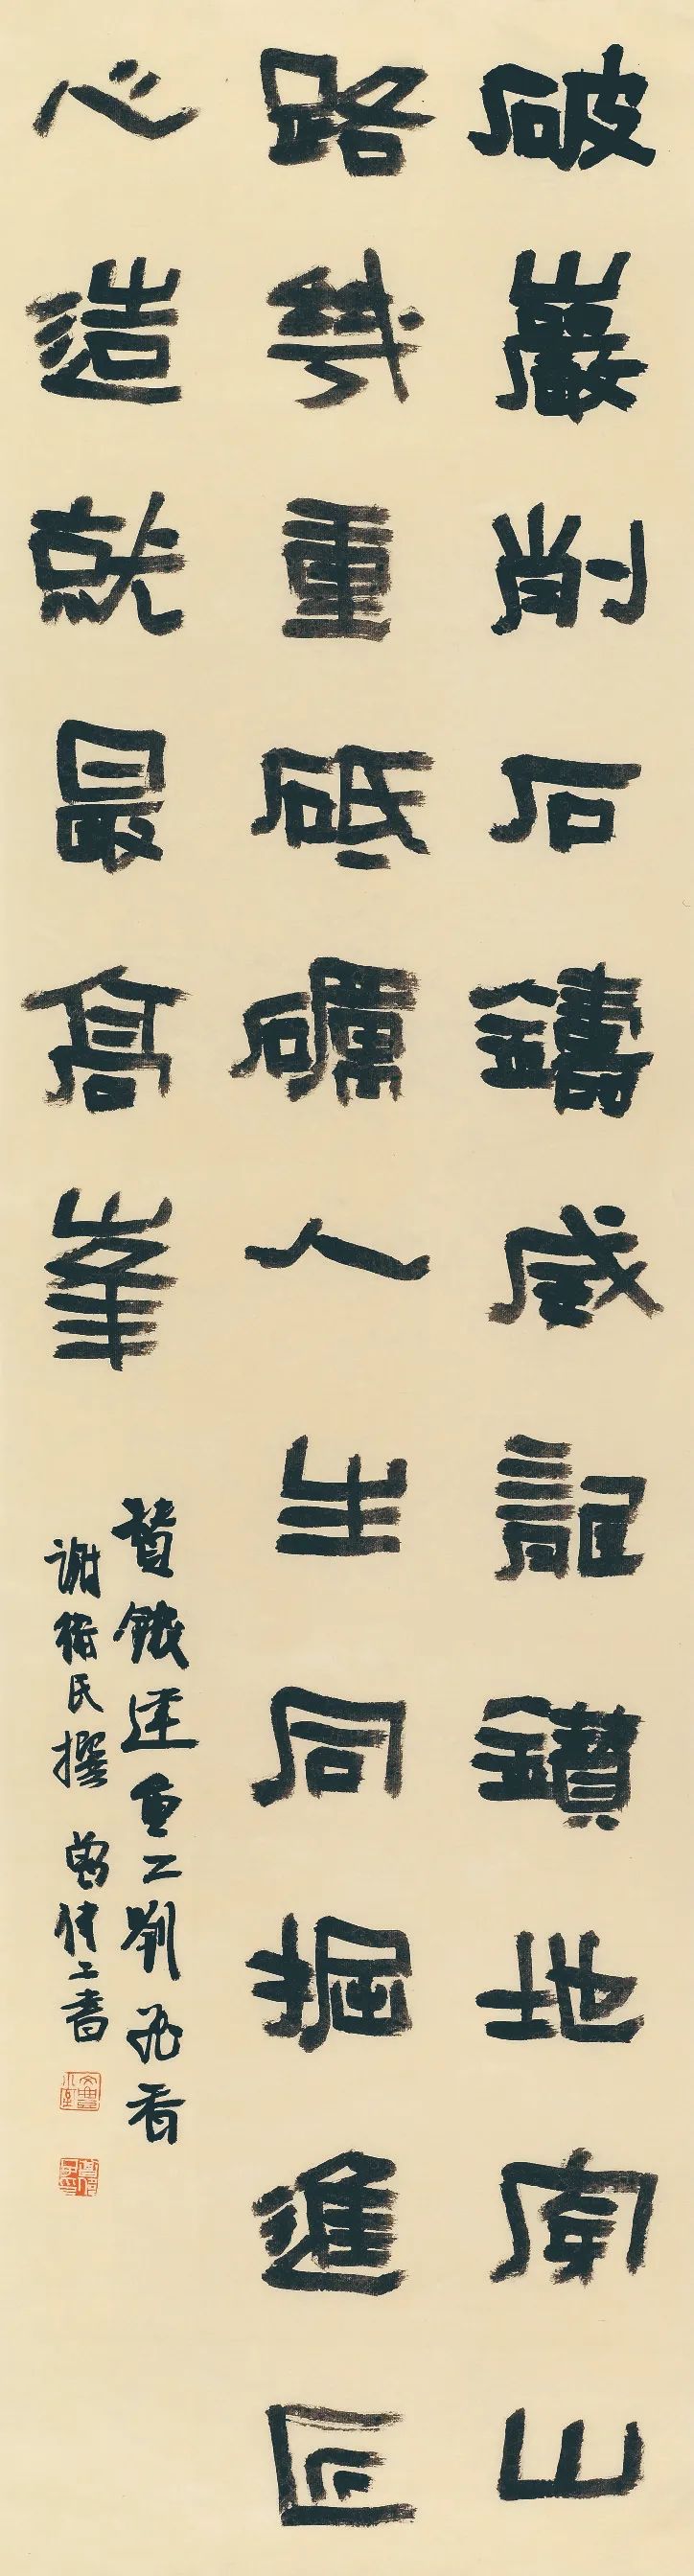 破巖削石鑄威記鑽地南山
路幾重砥礪人生同掘進匠
心造就最高峯
贊鐵建重工劉飛香
謝衛民撰 曾偉工書